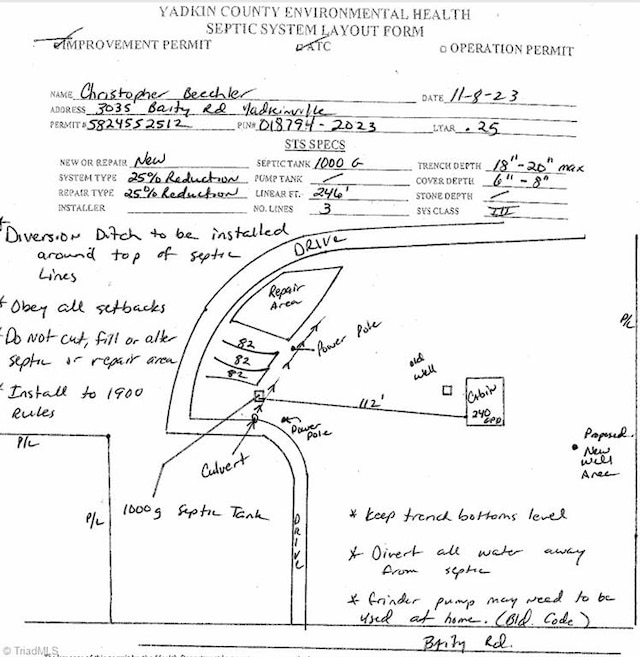 YADKIN COUNTY ENVIRONMENTAL HEALTH
SEPTIC SYSTEM LAYOUT FORM
IMPROVEMENT PERMIT ATC OPERATION PERMIT
NAME Christopher Beechler DATE 11-8-23
ADDRESS 3035 Baity Rd Yadkinville
PERMIT# 5824552512 PIN# 018794-2023 LTAR .25
STS SPECS
NEW OR REPAIR New SEPTIC TANK 1000 G TRENCH DEPTH 18"-20" max
SYSTEM TYPE 25% Reduction PUMP TANK / COVER DEPTH 6"-8"
REPAIR TYPE 25% Reduction LINEAR FT. 246' STONE DEPTH /
INSTALLER NO. LINES 3 SYS CLASS III
* Diversion Ditch to be installed
around top of septic
Lines
* Obey all setbacks
* Do Not cut, fill or alter
septic or repair area
* Install to 1900
Rules
DRIVE
Repair
Area
82
82
82
Power Pole
old
well
Cabin
240
GPD
112'
Power
Pole
Culvert
P/L
P/L
P/L
Proposed
New
Well
Area
1000g Septic Tank
DRIVE
* Keep trench bottoms level
* Divert all water away
from septic
* Grinder pump may need to be
used at home. (Bld. Code)
Baity Rd.
© TriadMLS